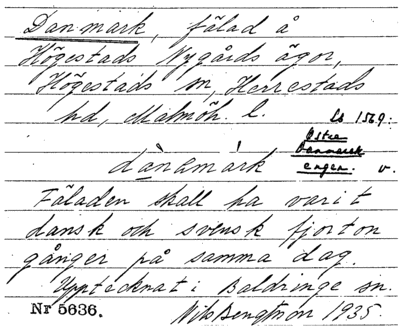 Danmark, fälad å
Högestads Nygårds ägor,
Högestads sn, Herrestads
hd, Malmöh. l.
Lb 1569:
Östre
Danmarck
engen. v.
dànₐmárk
Fäladen skall ha varit
dansk och svensk fjorton
gånger på samma dag.
Upptecknat i Baldringe sn.
Nr 5636.
Nils Bengtsson 1935.